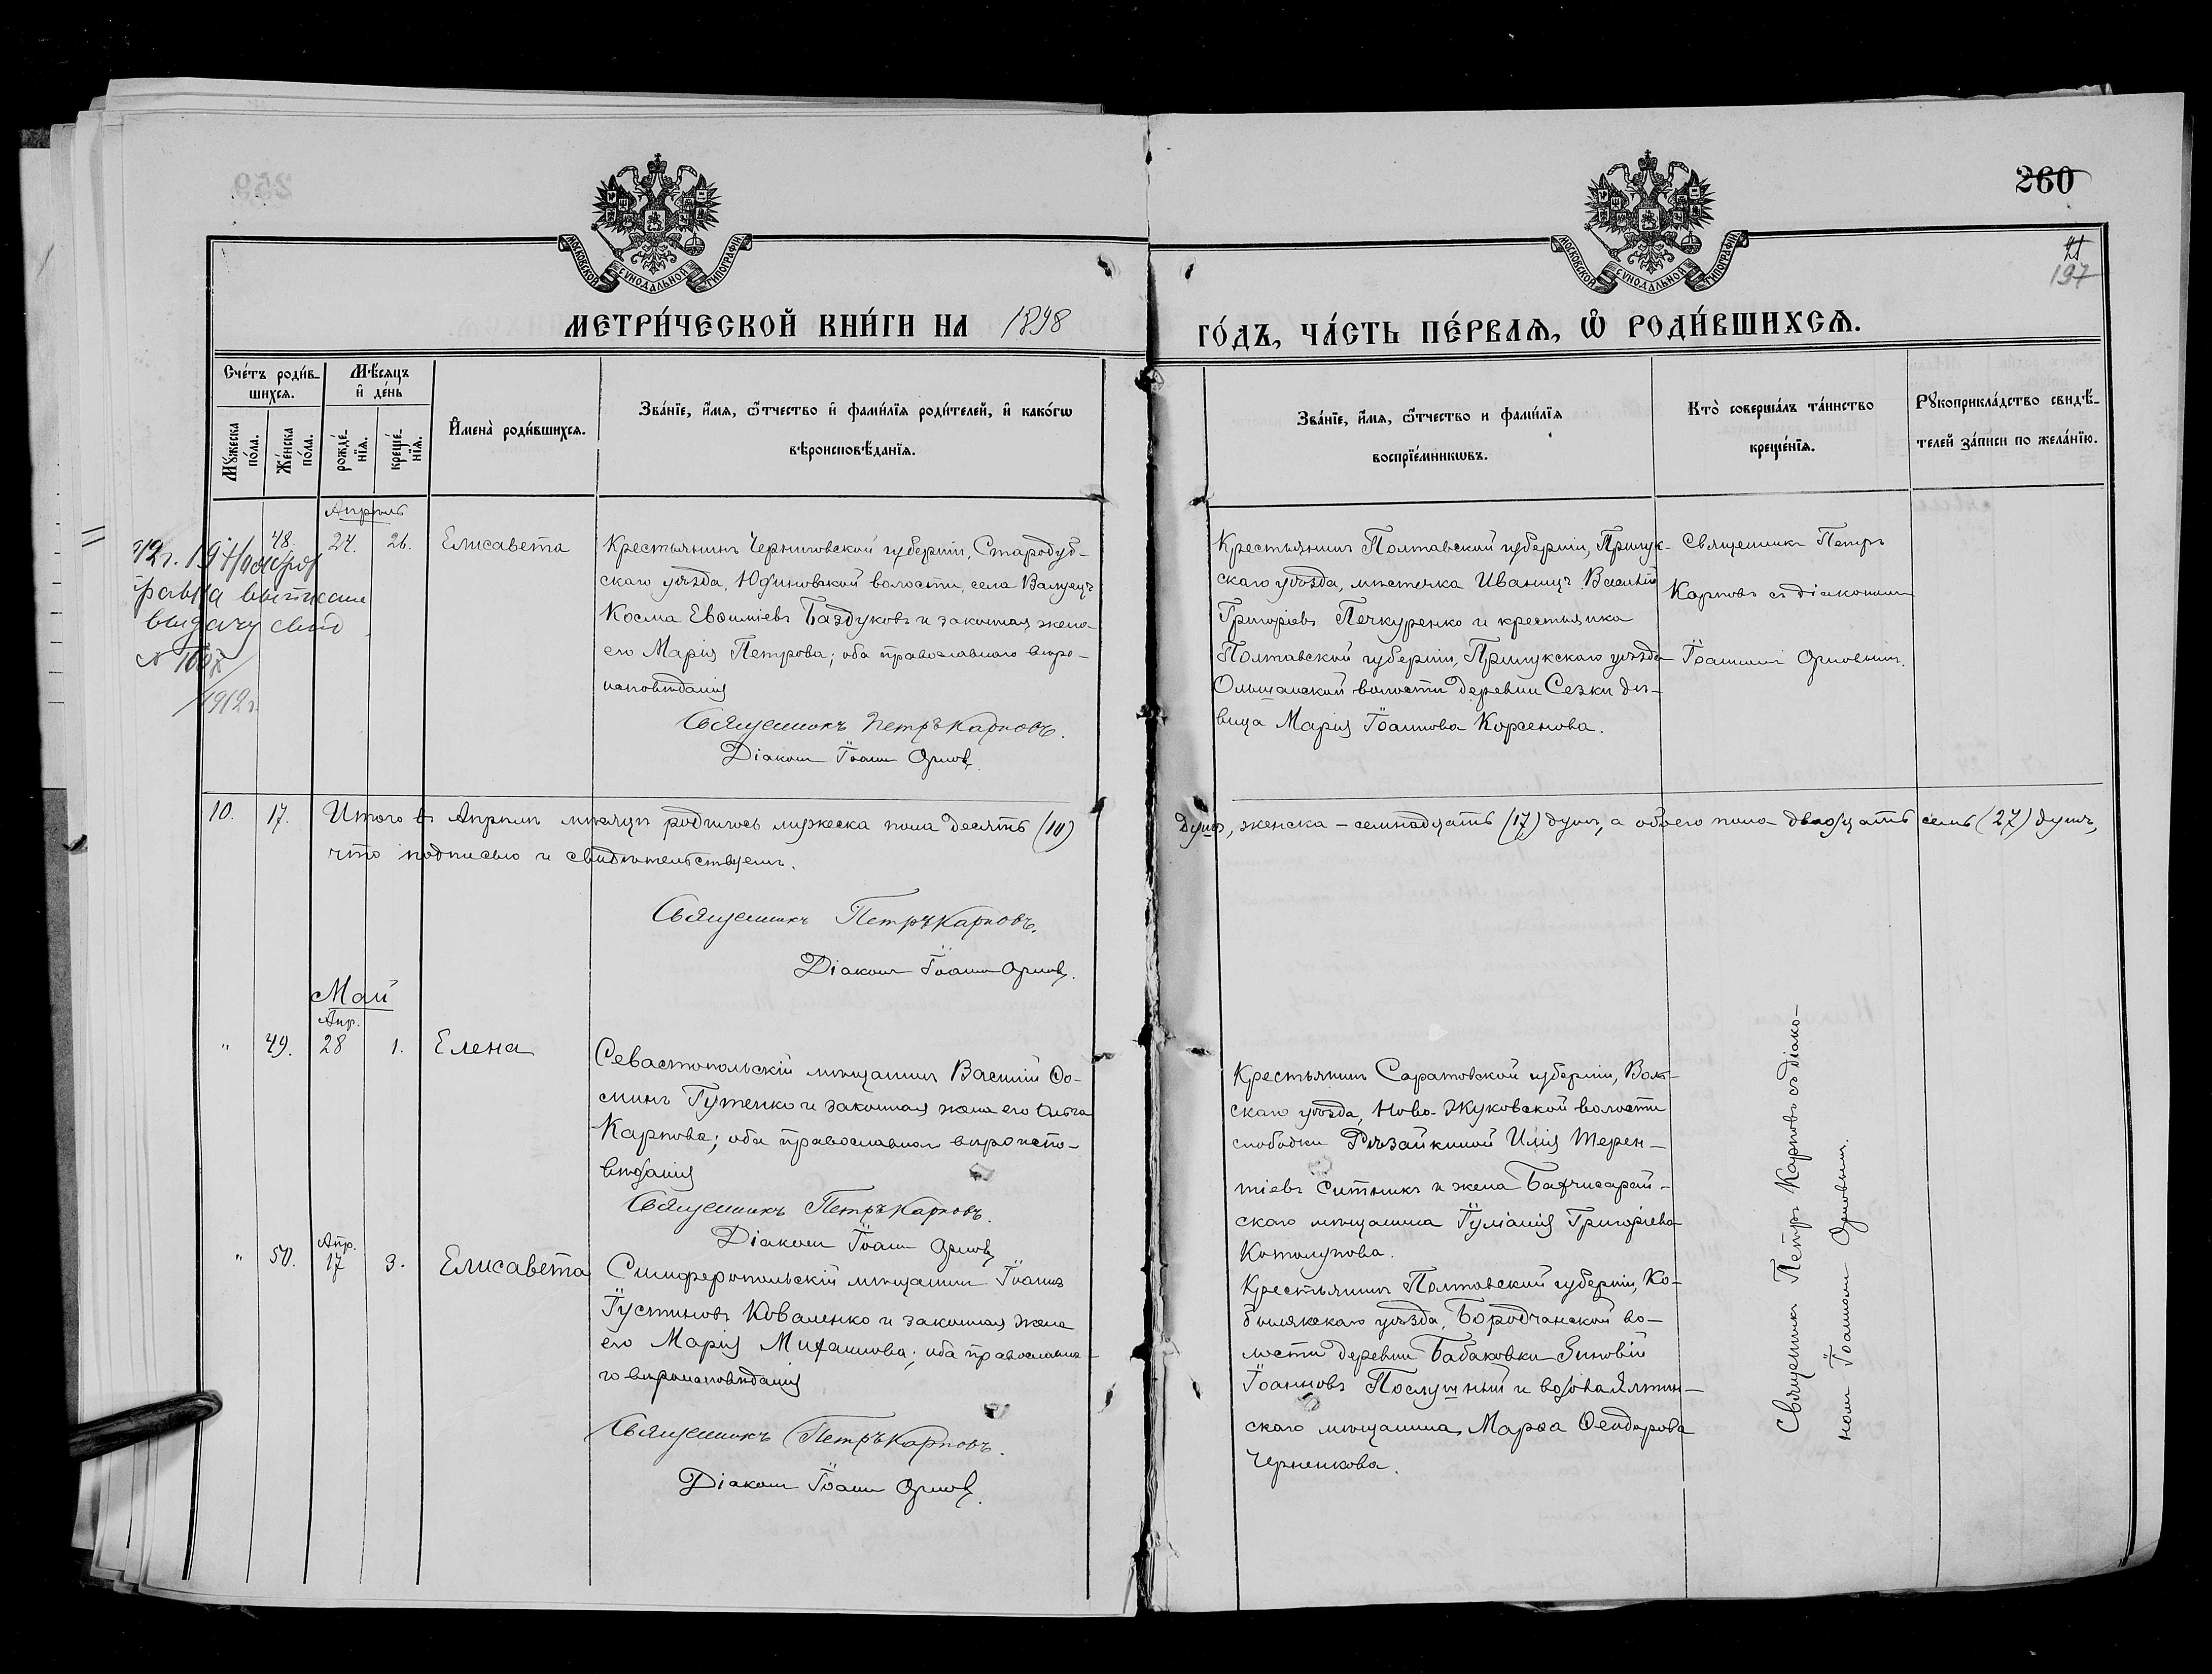 260
197
МОСКОВСКОЙ СУНОДАЛЬНОЙ ТИПОГРАФІИ
МОСКОВСКОЙ СУНОДАЛЬНОЙ ТИПОГРАФІИ
МЕТРИ́ЧЕСКОЙ КНИ́ГИ НА 1898
ГО́ДЪ, ЧА́СТЬ ПЕ́РВАѦ, Ѡ҆ РОДИ́ВШИХСѦ.
Сче́тъ роди́в-
шихсѧ.
Мѣ́сѧцъ
и҆ де́нь
Мꙋ́жеска
по́ла.
Же́нска
по́ла.
рожде́-
нїѧ.
креще́-
нїѧ.
И҆мена̀ роди́вшихсѧ.
Зва́нїе, и҆́мѧ, ѻ҆́тчество и҆ фами́лїѧ роди́телей, и҆ како́гѡ
вѣроисповѣ́данїѧ.
Зва́нїе, и҆́мѧ, ѻ҆́тчество и фами́лїѧ
воспрїе́мникѡвъ.
Кто̀ соверша́лъ та́инство
креще́нїѧ.
Рꙋкоприкла́дство свидѣ́-
телей за́писи по жела́нїю.
Апрѣль
48. 24. 26. Елисавета
Крестьянинъ Черниговской губерніи, Стародуб-
скаго уѣзда, Юдиновской волости, села Валуецъ
Косма Евѳиміевъ Баздуковъ и законная жена
его Марія Петрова; оба православнаго вѣро-
исповѣданія
Священникъ Петръ Карповъ.
Діаконъ Іоаннъ Орловъ.
Крестьянинъ Полтавской губерніи, Прилук-
скаго уѣзда, мѣстечка Иваницъ Василій
Григоріевъ Печкуренко и крестьянка
Полтавской губерніи, Прилукскаго уѣзда
Ольшанской волости деревни Сезки дѣ-
вица Марія Іоаннова Корженова.
Священникъ Петръ
Карповъ съ діакономъ
Іоанномъ Орловымъ.
выдачу свид
1912г.
10. 17. Итого въ Апрѣлѣ мѣсяцѣ родилось мужеска пола десять (10)
душъ, женска – семнадцать (17) душъ, а обоего пола двадцать семь (27) душъ,
что подписью и свидѣтельствуемъ.
Священникъ Петръ Карповъ.
Діаконъ Іоаннъ Орловъ.
Май
Апр.
" 49. 28 1. Елена
Севастопольскій мѣщанинъ Василій Ѳо-
минъ Гутенко и законная жена его Ольга
Карпова; оба православнаго вѣроиспо-
вѣданія
Священникъ Петръ Карповъ.
Діаконъ Іоаннъ Орловъ
Крестьянинъ Саратовской губерніи, Воль-
скаго уѣзда, Ново-Жуковской волости
слободки Рѣзайкиной Илія Терен-
тіевъ Ситникъ и жена Бахчисарай-
скаго мѣщанина Іуліанія Григоріева
Котолупова.
Апр.
" 50. 17 3. Елисавета
Симферопольскій мѣщанинъ Іоаннъ
Іустиновъ Коваленко и законная жена
его Марія Михаилова; оба православна-
го вѣроисповѣданія
Священникъ Петръ Карповъ.
Діаконъ Іоаннъ Орловъ.
Крестьянинъ Полтавской губерніи, Ко-
белякскаго уѣзда, Бородчанской во-
лости деревни Бабаковки Зиновій
Іоанновъ Послушный и вдова Ялтин-
скаго мѣщанина Марѳа Ѳеодорова
Черненкова.
Священникъ Петръ Карповъ съ діако-
номъ Іоанномъ Орловымъ.